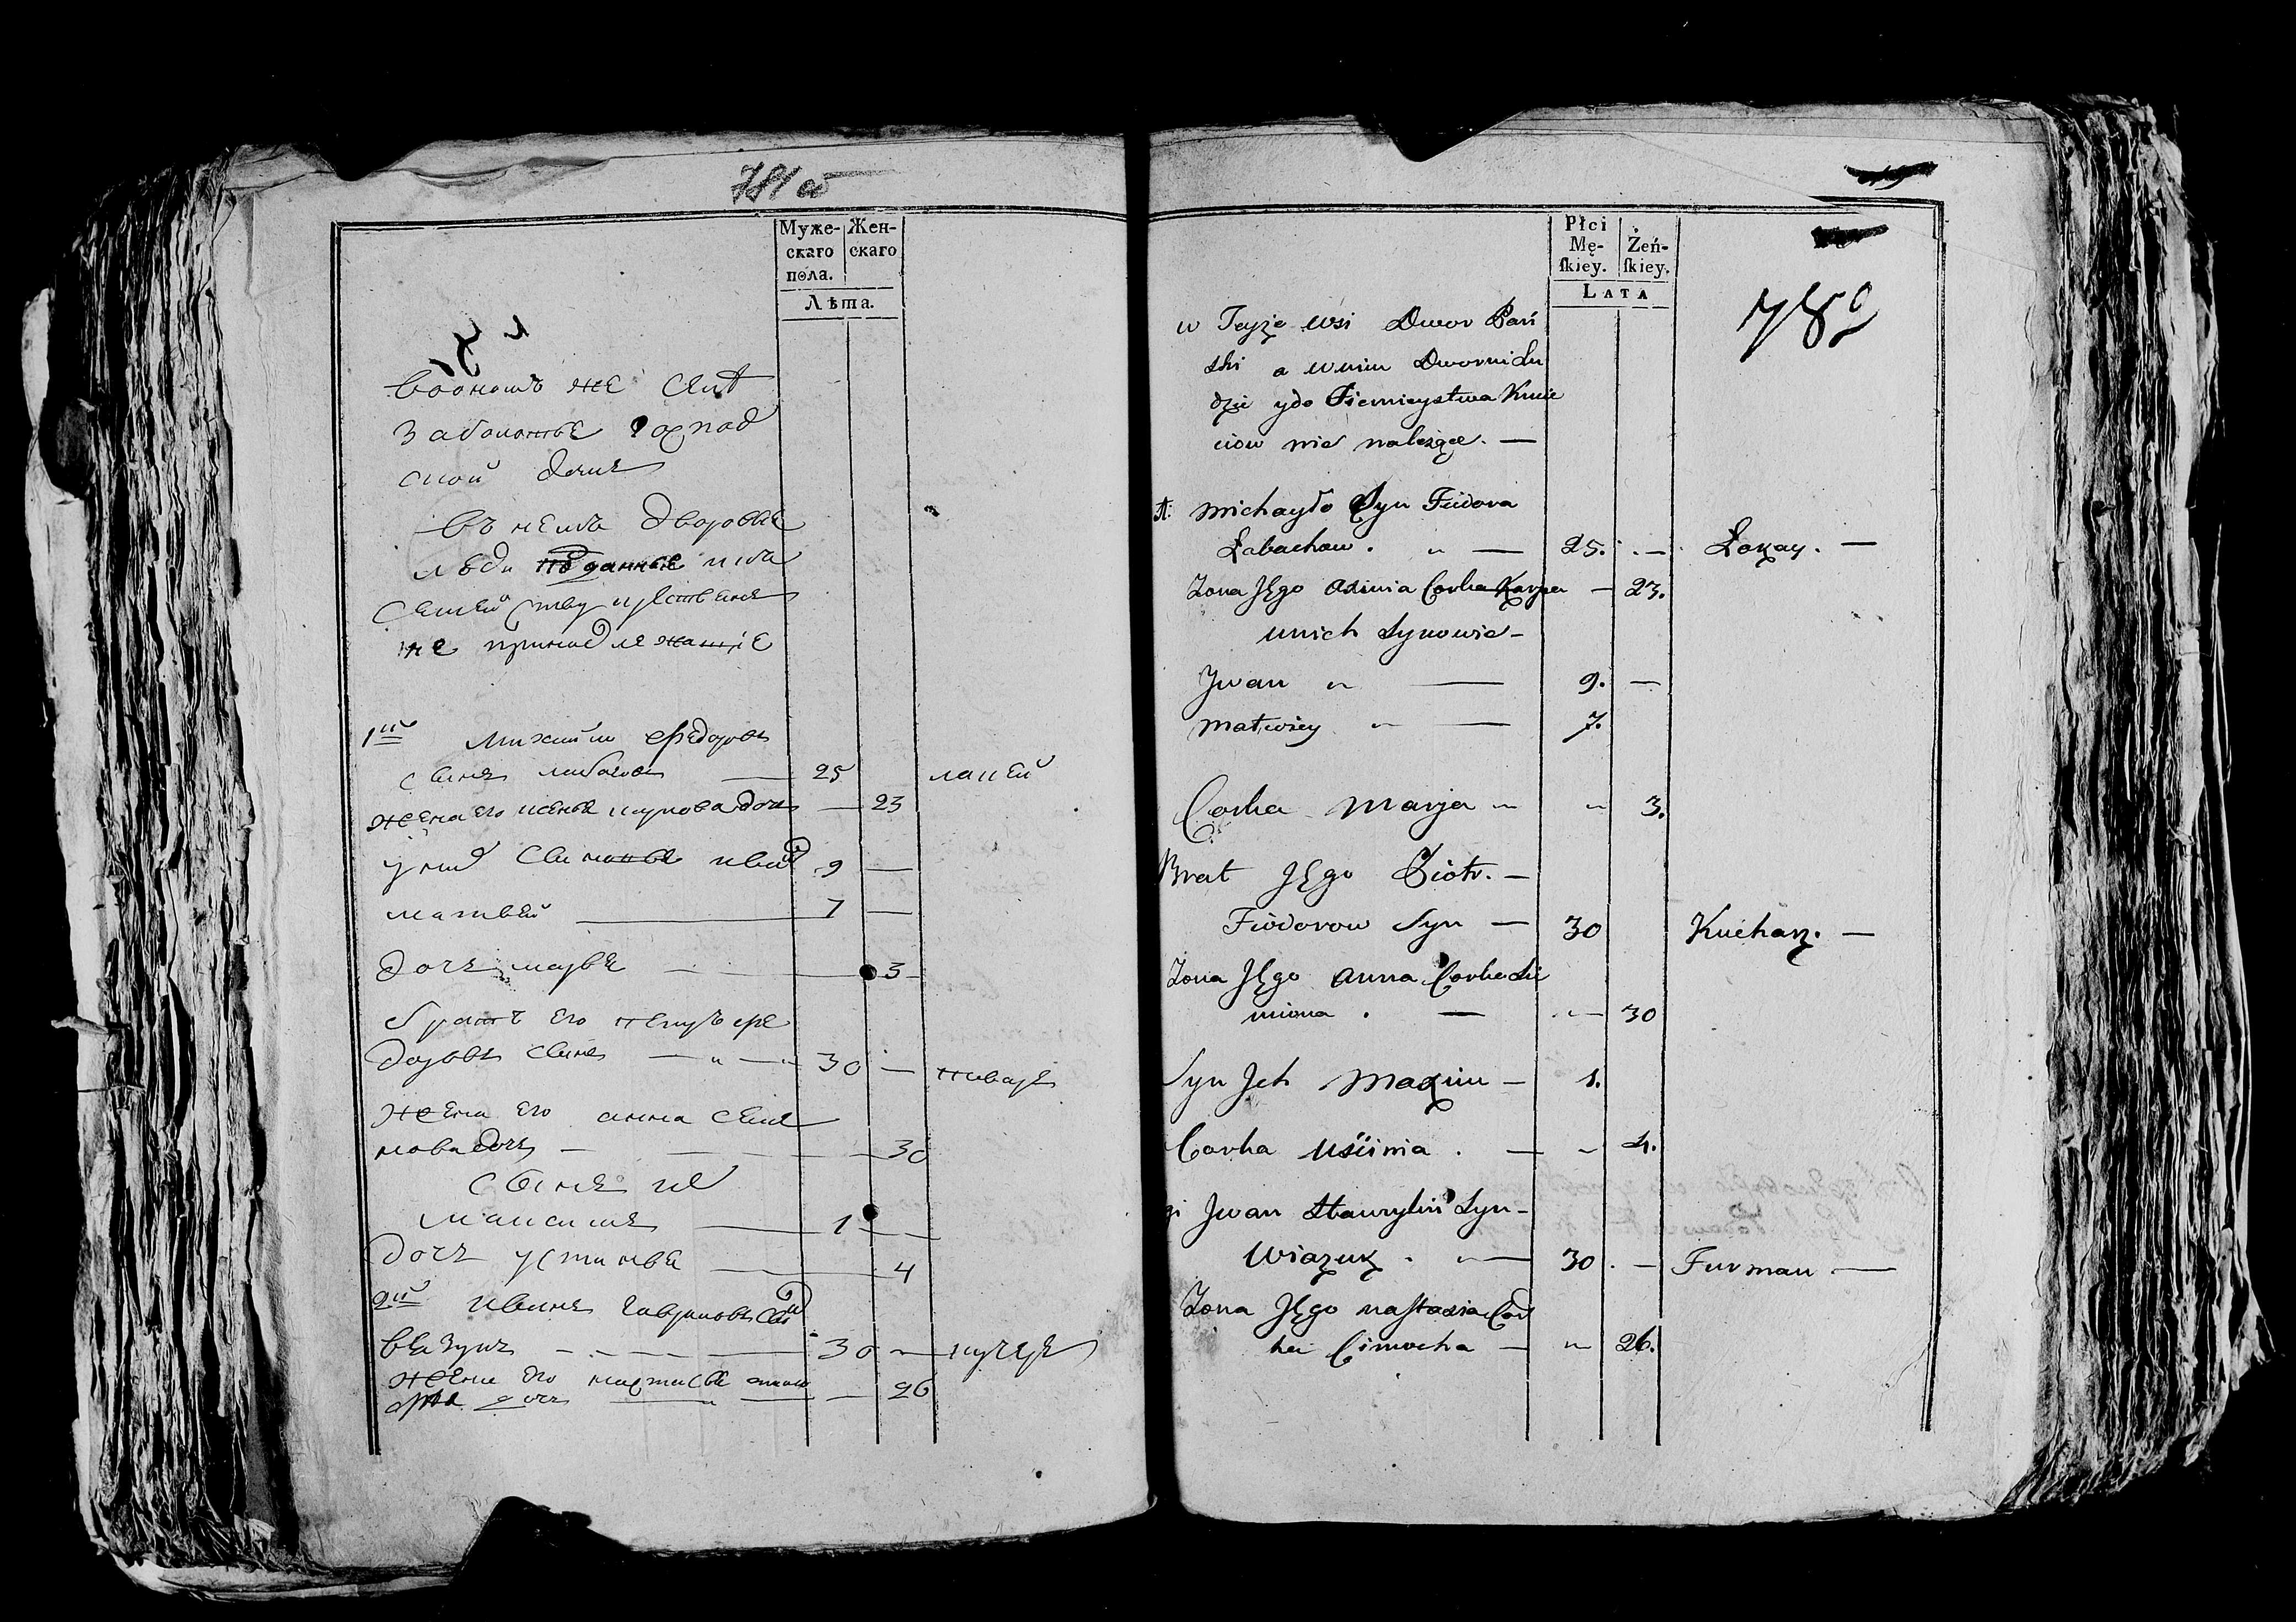 781 об
Муже-
скаго
пола.
Жен-
скаго
Лѣта.
воономъ же селѣ
Заболотье господ
скои домъ
въ немъ дворовые
люди
не принадлежащiе
1й Михайло Федоровъ
сынъ лабаховъ — 25 лакей
жена его ксенья карпова дочь — 23
у них сыновья иван 9 —
матвей — 7 —
дочь марья — 3 —
братъ его петръ фе
доровъ сынъ — 30 — поваръ
жена его анна семе
нова дочь — 30
сынъ их
максимъ — 1 —
дочь устинья — 4
2й иванъ гавриловъ сын
вязунъ — 30 — кучеръ
жена его настасья тимо
дочь — 26
Płci
Mę-
skiey.
Żeń-
skiey.
LATA
789
w Teyże wsi Dwor Pań
ski a wnim Dworni Lu
dzie ydo Ziemieystwa Kmie
ciow nie należące. —
A: Michayło Syn Fiedora
Łabachow. — 25. — Łokay. —
Żona Jego Axinia Corka Karpa — 23.
unich Synowie —
Jwan — 9. —
Matwiey — 7.
Corka Marja — 3.
Brat Jego Piotr. —
Fiodorow Syn — 30 Kucharz. —
Żona Jego Anna Corka Sie
miona. — 30
Syn Jch Maxim — 1.
Corka Uściinia. — 4.
Jwan Hawryłin Syn —
Wiazuk. — 30. — Furman —
Żona Jego Nastasia Cor
ka Cimocha — 26.